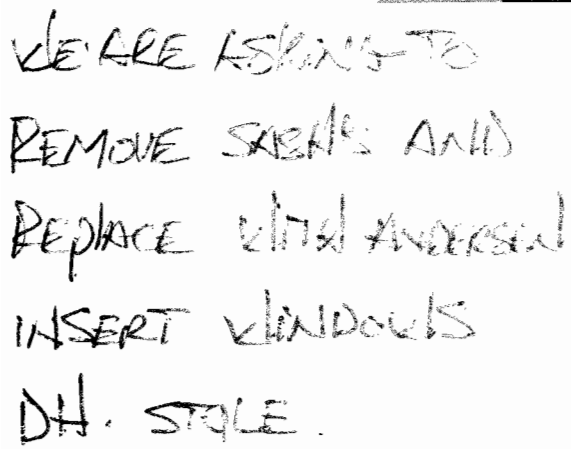 WE ARE ASKING TO
REMOVE SASH'S AND
REPLACE WITH ANDERSEN
INSERT WINDOWS
DH. STYLE.